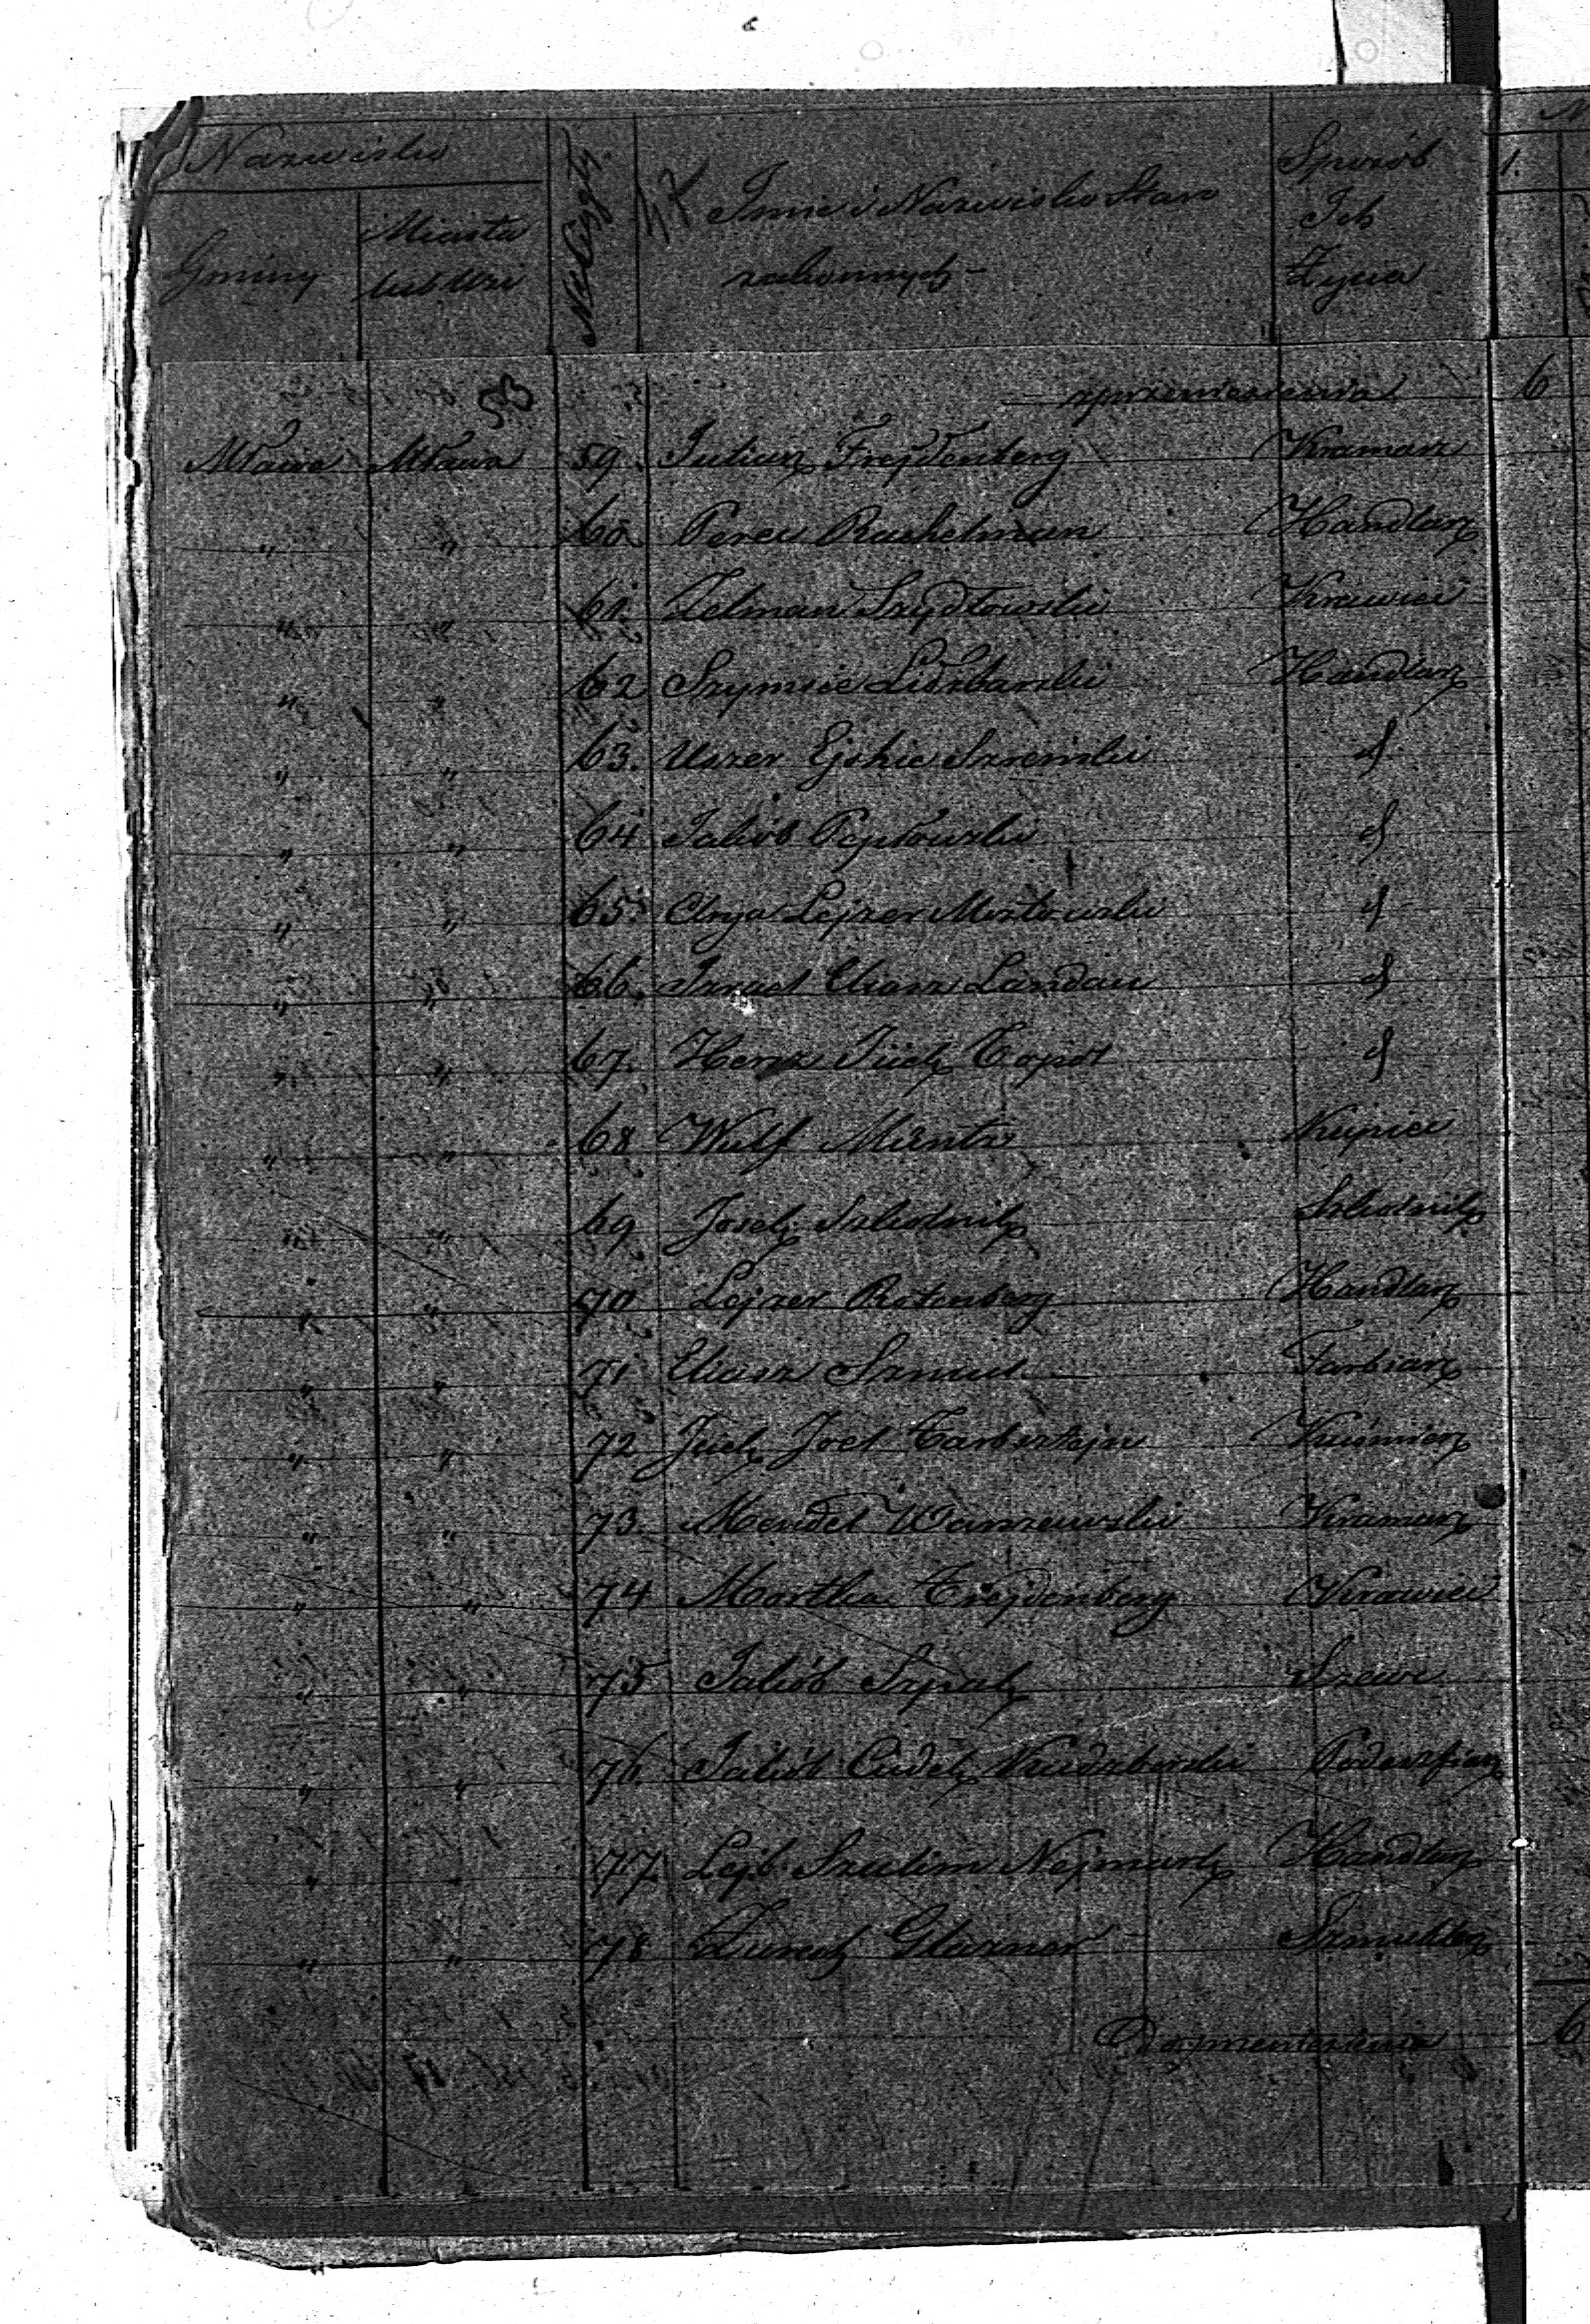 Nazwisko
Gminy
Miasta
lub Wsi
Imie i Nazwisko Star
zakonnych
Sposób
Ich
Życia
1.
z przeniesienia 6
Mława Mława 59. Juliusz Frejdenberg Kramarz
" " 60 Perec Rachelman Handlarz
" " 61. Zelman Szydłowski Krawiec
" " 62 Szymsie Lidzbarski Handlarz
" " 63. Uszer Ejchie Szreński d
" " 64 Jakób Peptowski d
" " 65. Chya Lejzer Mostowski d
" " 66. Izrael Eliasz Landau d
" " 67. Hersz Icek Topol d
" " 68 Wulf Mientz Kupiec
" " 69 Josek Szkolnik Szkolnik
" " 70 Lejzer Rotenberg Handlarz
" " 71 Eliasz Szmul Farbiarz
" " 72 Icek Joel Farbsztejn Kuśmierz
" " 73. Mendel Warszawski Kramarz
" " 74 Mortka Frejdenberg Krawiec
" " 75 Jakób Szpak Szewc
" " 76. Jakób Cudek
" " 77. Lejb Szulim Nejmark Handlarz
" " 78 Glazner Szmuklerz
Do przeniesienia 6